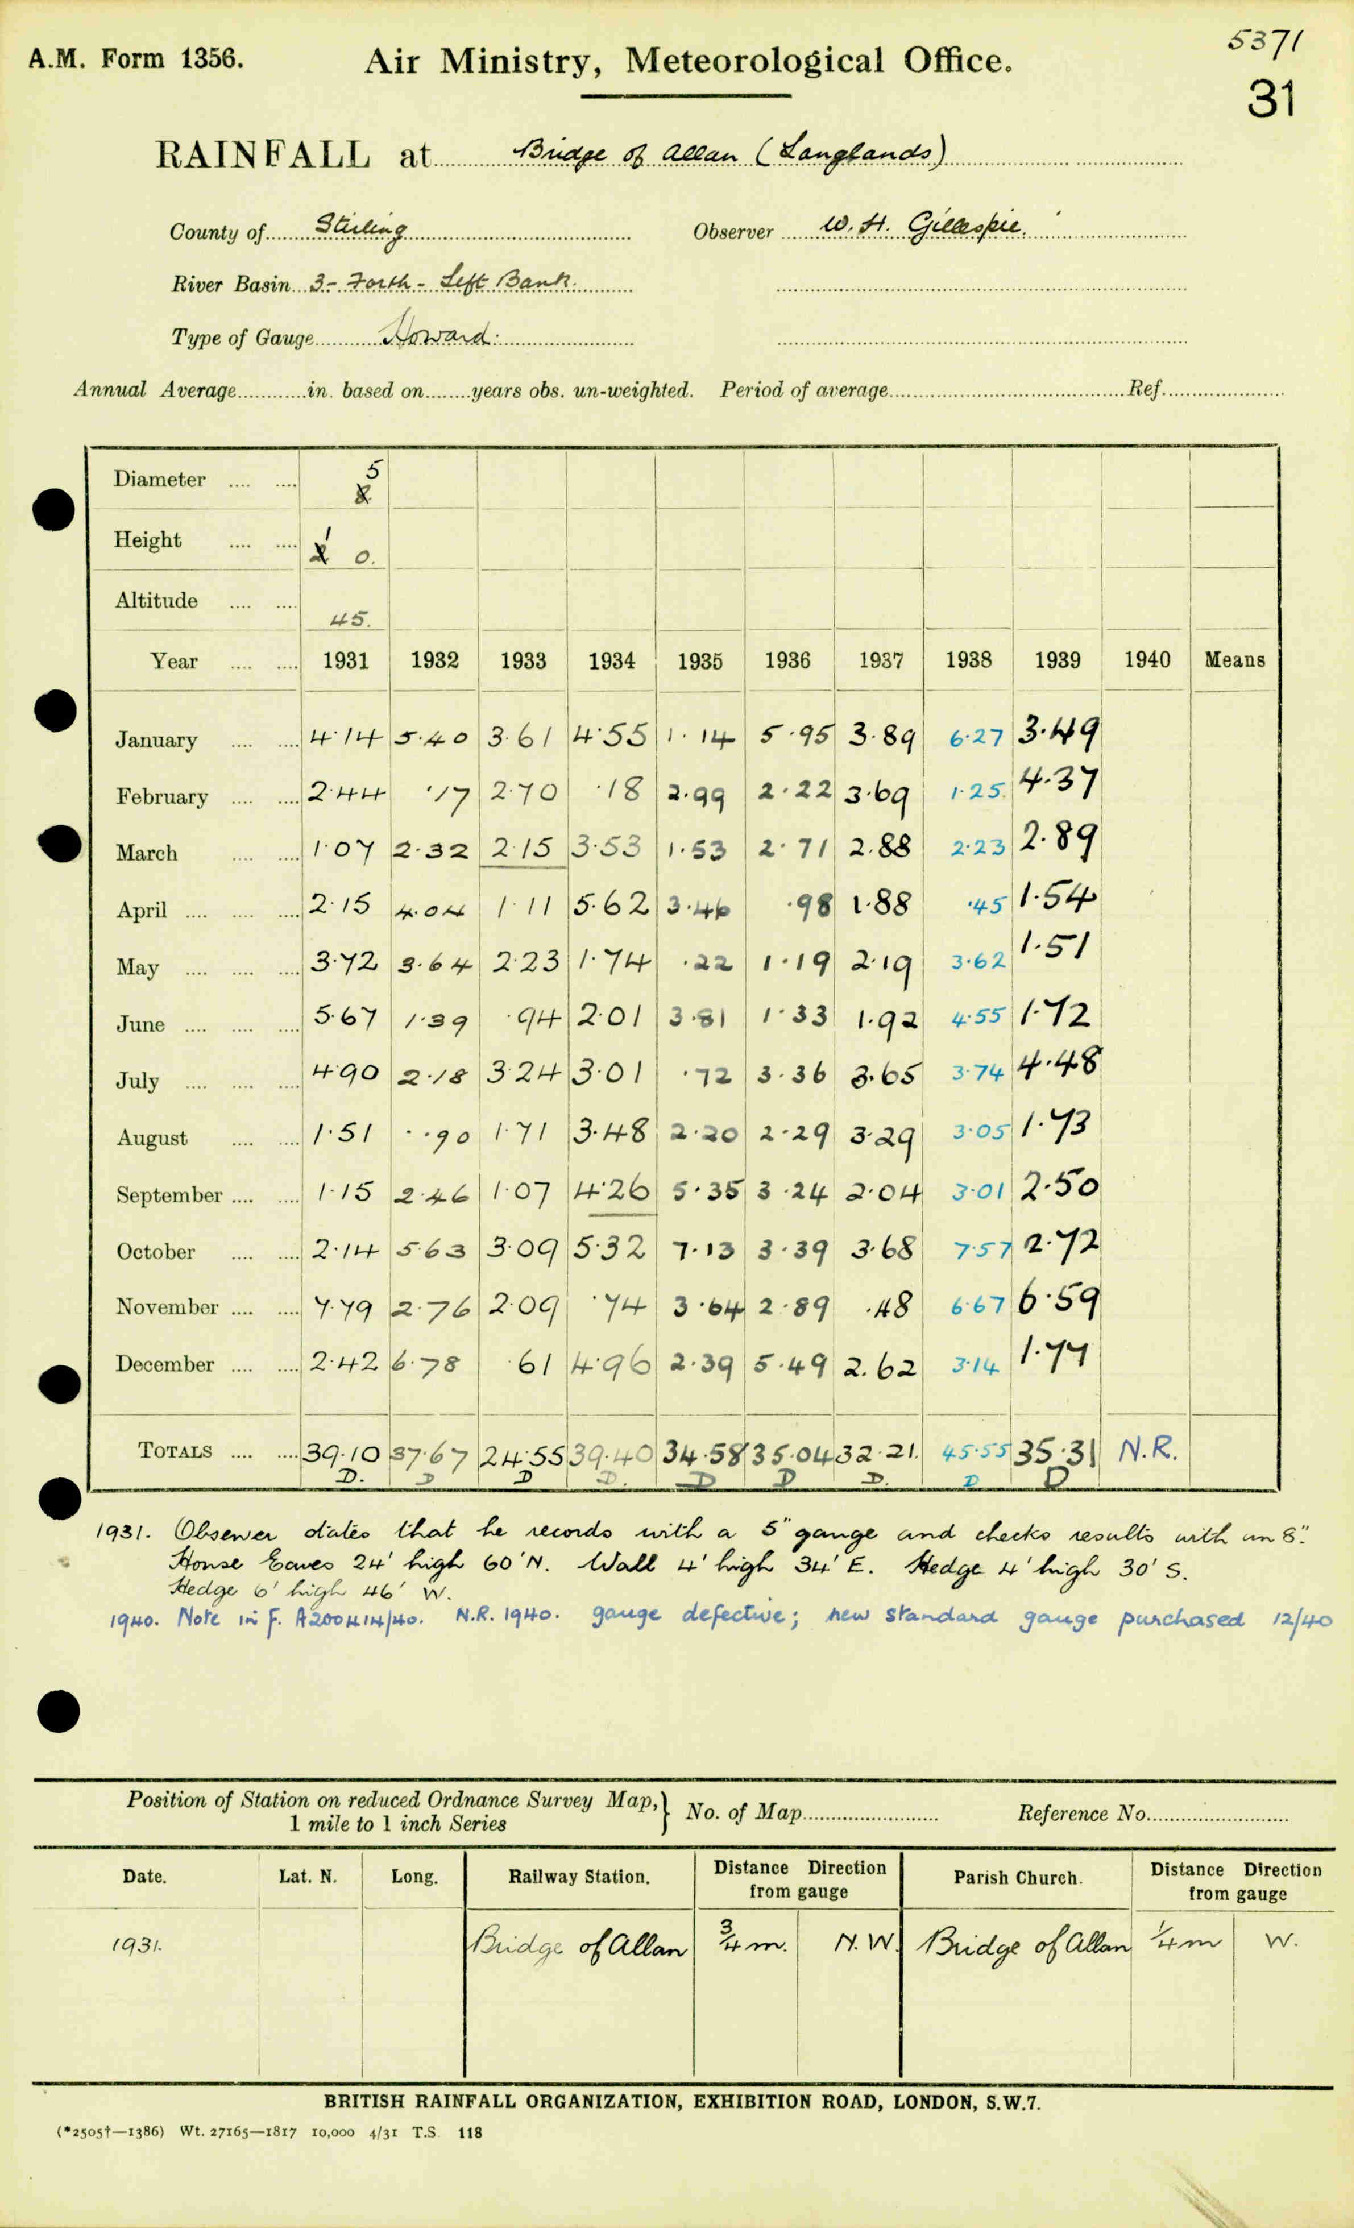 5371
A.M. Form 1356. Air Ministry, Meteorological Office.
31
RAINFALL at Bridge of Allan (Langlands)
County of Stirling Observer W. H. Gillespie.
River Basin 3 - Forth - Left Bank
Type of Gauge Howard.
Annual Average in. based on years obs. un-weighted. Period of average Ref.
Diameter 5 8
Height 1 2 0.
Altitude 45.
Year 1931 1932 1933 1934 1935 1936 1937 1938 1939 1940 Means
January 4·14 5·40 3·61 4·55 1·14 5·95 3·89 6·27 3·49
February 2·44 ·17 2·70 ·18 2·99 2·22 3·69 1·25 4·37
March 1·07 2·32 2·15 3·53 1·53 2·71 2·88 2·23 2·89
April 2·15 4·04 1·11 5·62 3·46 ·98 1·88 ·45 1·54
May 3·72 3·64 2·23 1·74 ·22 1·19 2·19 3·62 1·51
June 5·67 1·39 ·94 2·01 3·81 1·33 1·92 4·55 1·72
July 4·90 2·18 3·24 3·01 ·72 3·36 3·65 3·74 4·48
August 1·51 ·90 1·71 3·48 2·20 2·29 3·29 3·05 1·73
September 1·15 2·46 1·07 4·26 5·35 3·24 2·04 3·01 2·50
October 2·14 5·63 3·09 5·32 7·13 3·39 3·68 7·57 2·72
November 7·79 2·76 2·09 ·74 3·64 2·89 ·48 6·67 6·59
December 2·42 6·78 ·61 4·96 2·39 5·49 2·62 3·14 1·77
TOTALS 39·10 37·67 24·55 39·40 34·58 35·04 32·21 45·55 35·31 N.R.
D. D D D. D D D. D D
1931. Observer states that he records with a 5" gauge and checks results with an 8".
House Eaves 24' high 60' N. Wall 4' high 34' E. Hedge 4' high 30' S.
Hedge 6' high 46' W.
1940. Note in F. A200414/40. N.R. 1940. gauge defective; new standard gauge purchased 12/40
Position of Station on reduced Ordnance Survey Map, 1 mile to 1 inch Series } No. of Map Reference No.
Date. Lat. N. Long. Railway Station. Distance Direction from gauge Parish Church. Distance Direction from gauge
1931. Bridge of Allan 3/4 m. N.W. Bridge of Allan 1/4 m W.
BRITISH RAINFALL ORGANIZATION, EXHIBITION ROAD, LONDON, S.W.7.
(*2505†—1386) Wt. 27165—1817 10,000 4/31 T.S. 118